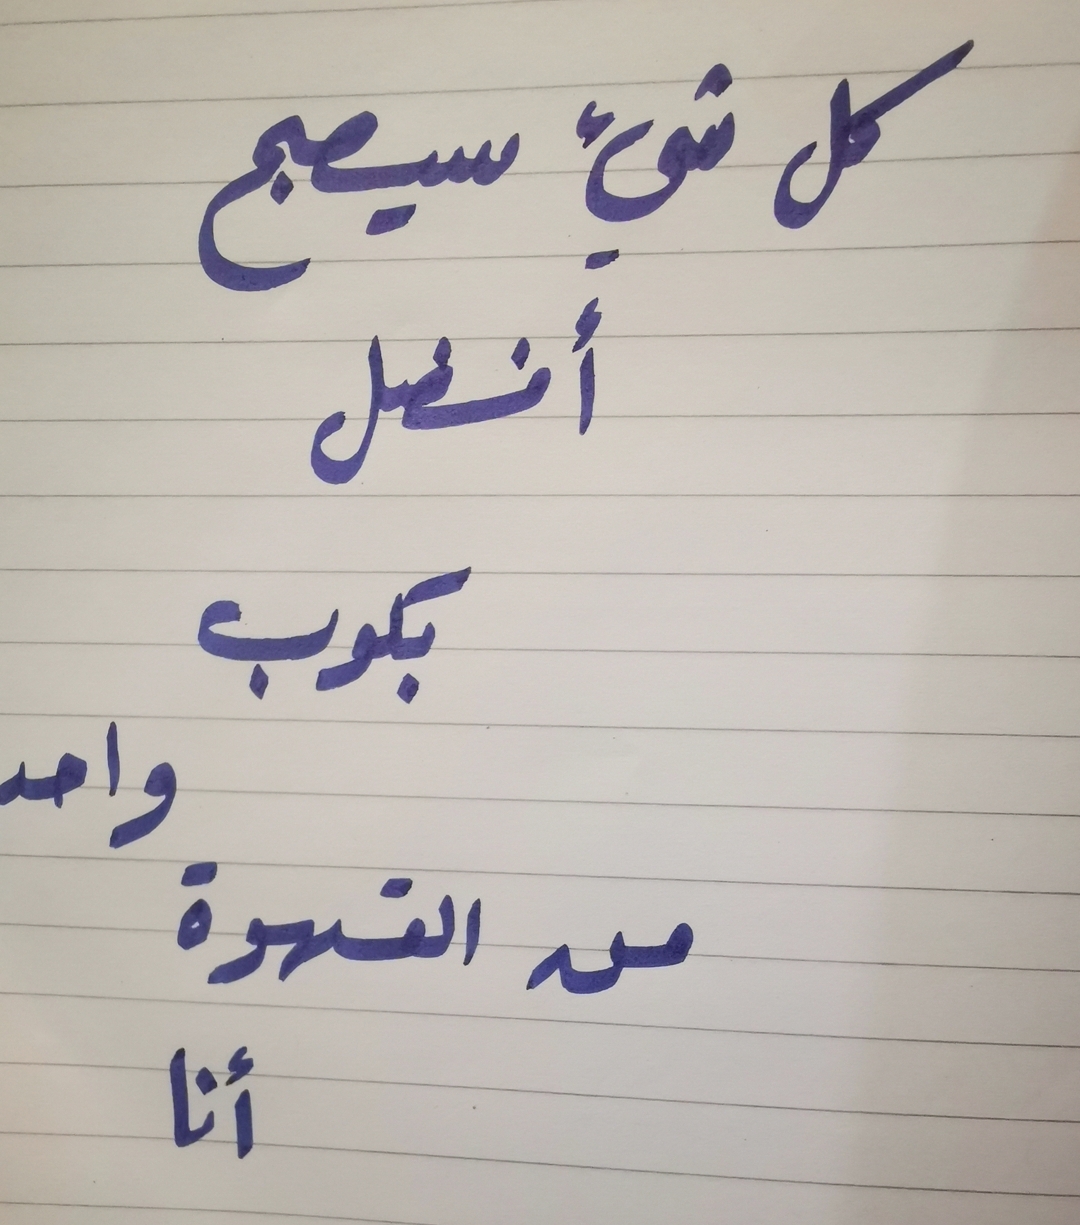 كل شئ سيصبح
أفضل
بكوب
واحد
من القهوة
أنا